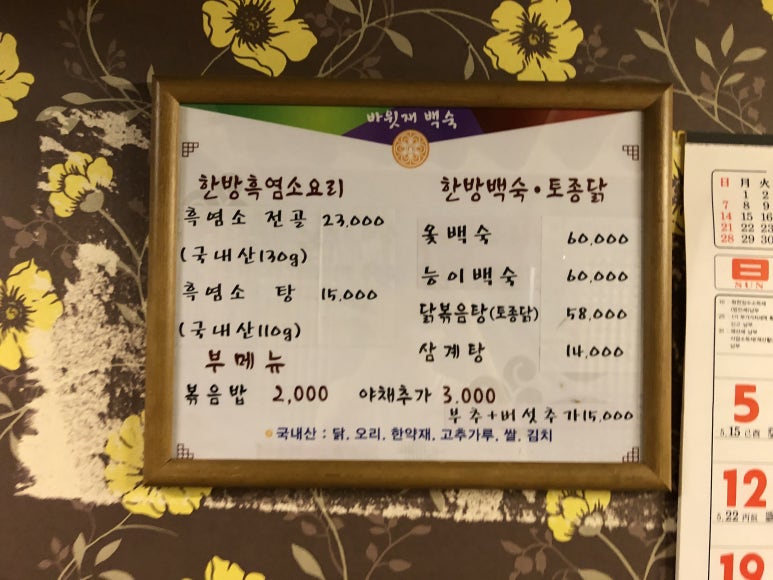 바윗재 백숙
한방흑염소요리
흑염소 전골 23,000
(국내산130g)
흑염소 탕 15,000
(국내산110g)
부메뉴
볶음밥 2,000 야채추가 3.000
부추+버섯추가15,000
한방백숙·토종닭
옻백숙 60,000
능이백숙 60,000
닭볶음탕(토종닭) 58,000
삼계탕 14,000
국내산 : 닭, 오리, 한약재, 고추가루, 쌀, 김치
日 月 火
1 2
7 8 9
14 15 16
21 22 23
28 29 30
日
SUN
5
5.15
12
5.22
19